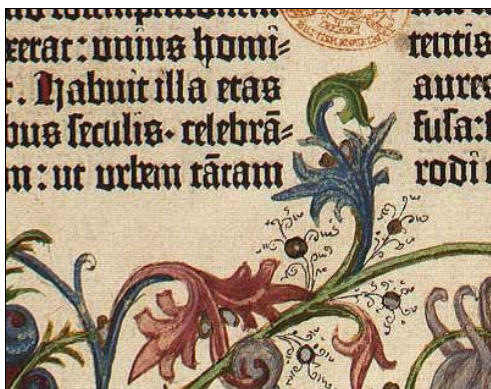 xerat : unius homi=
t. Habuit illa etas
bus seculis. celebrā=
m : ut urbem tātam
tentis
aures
fusa :
rodi